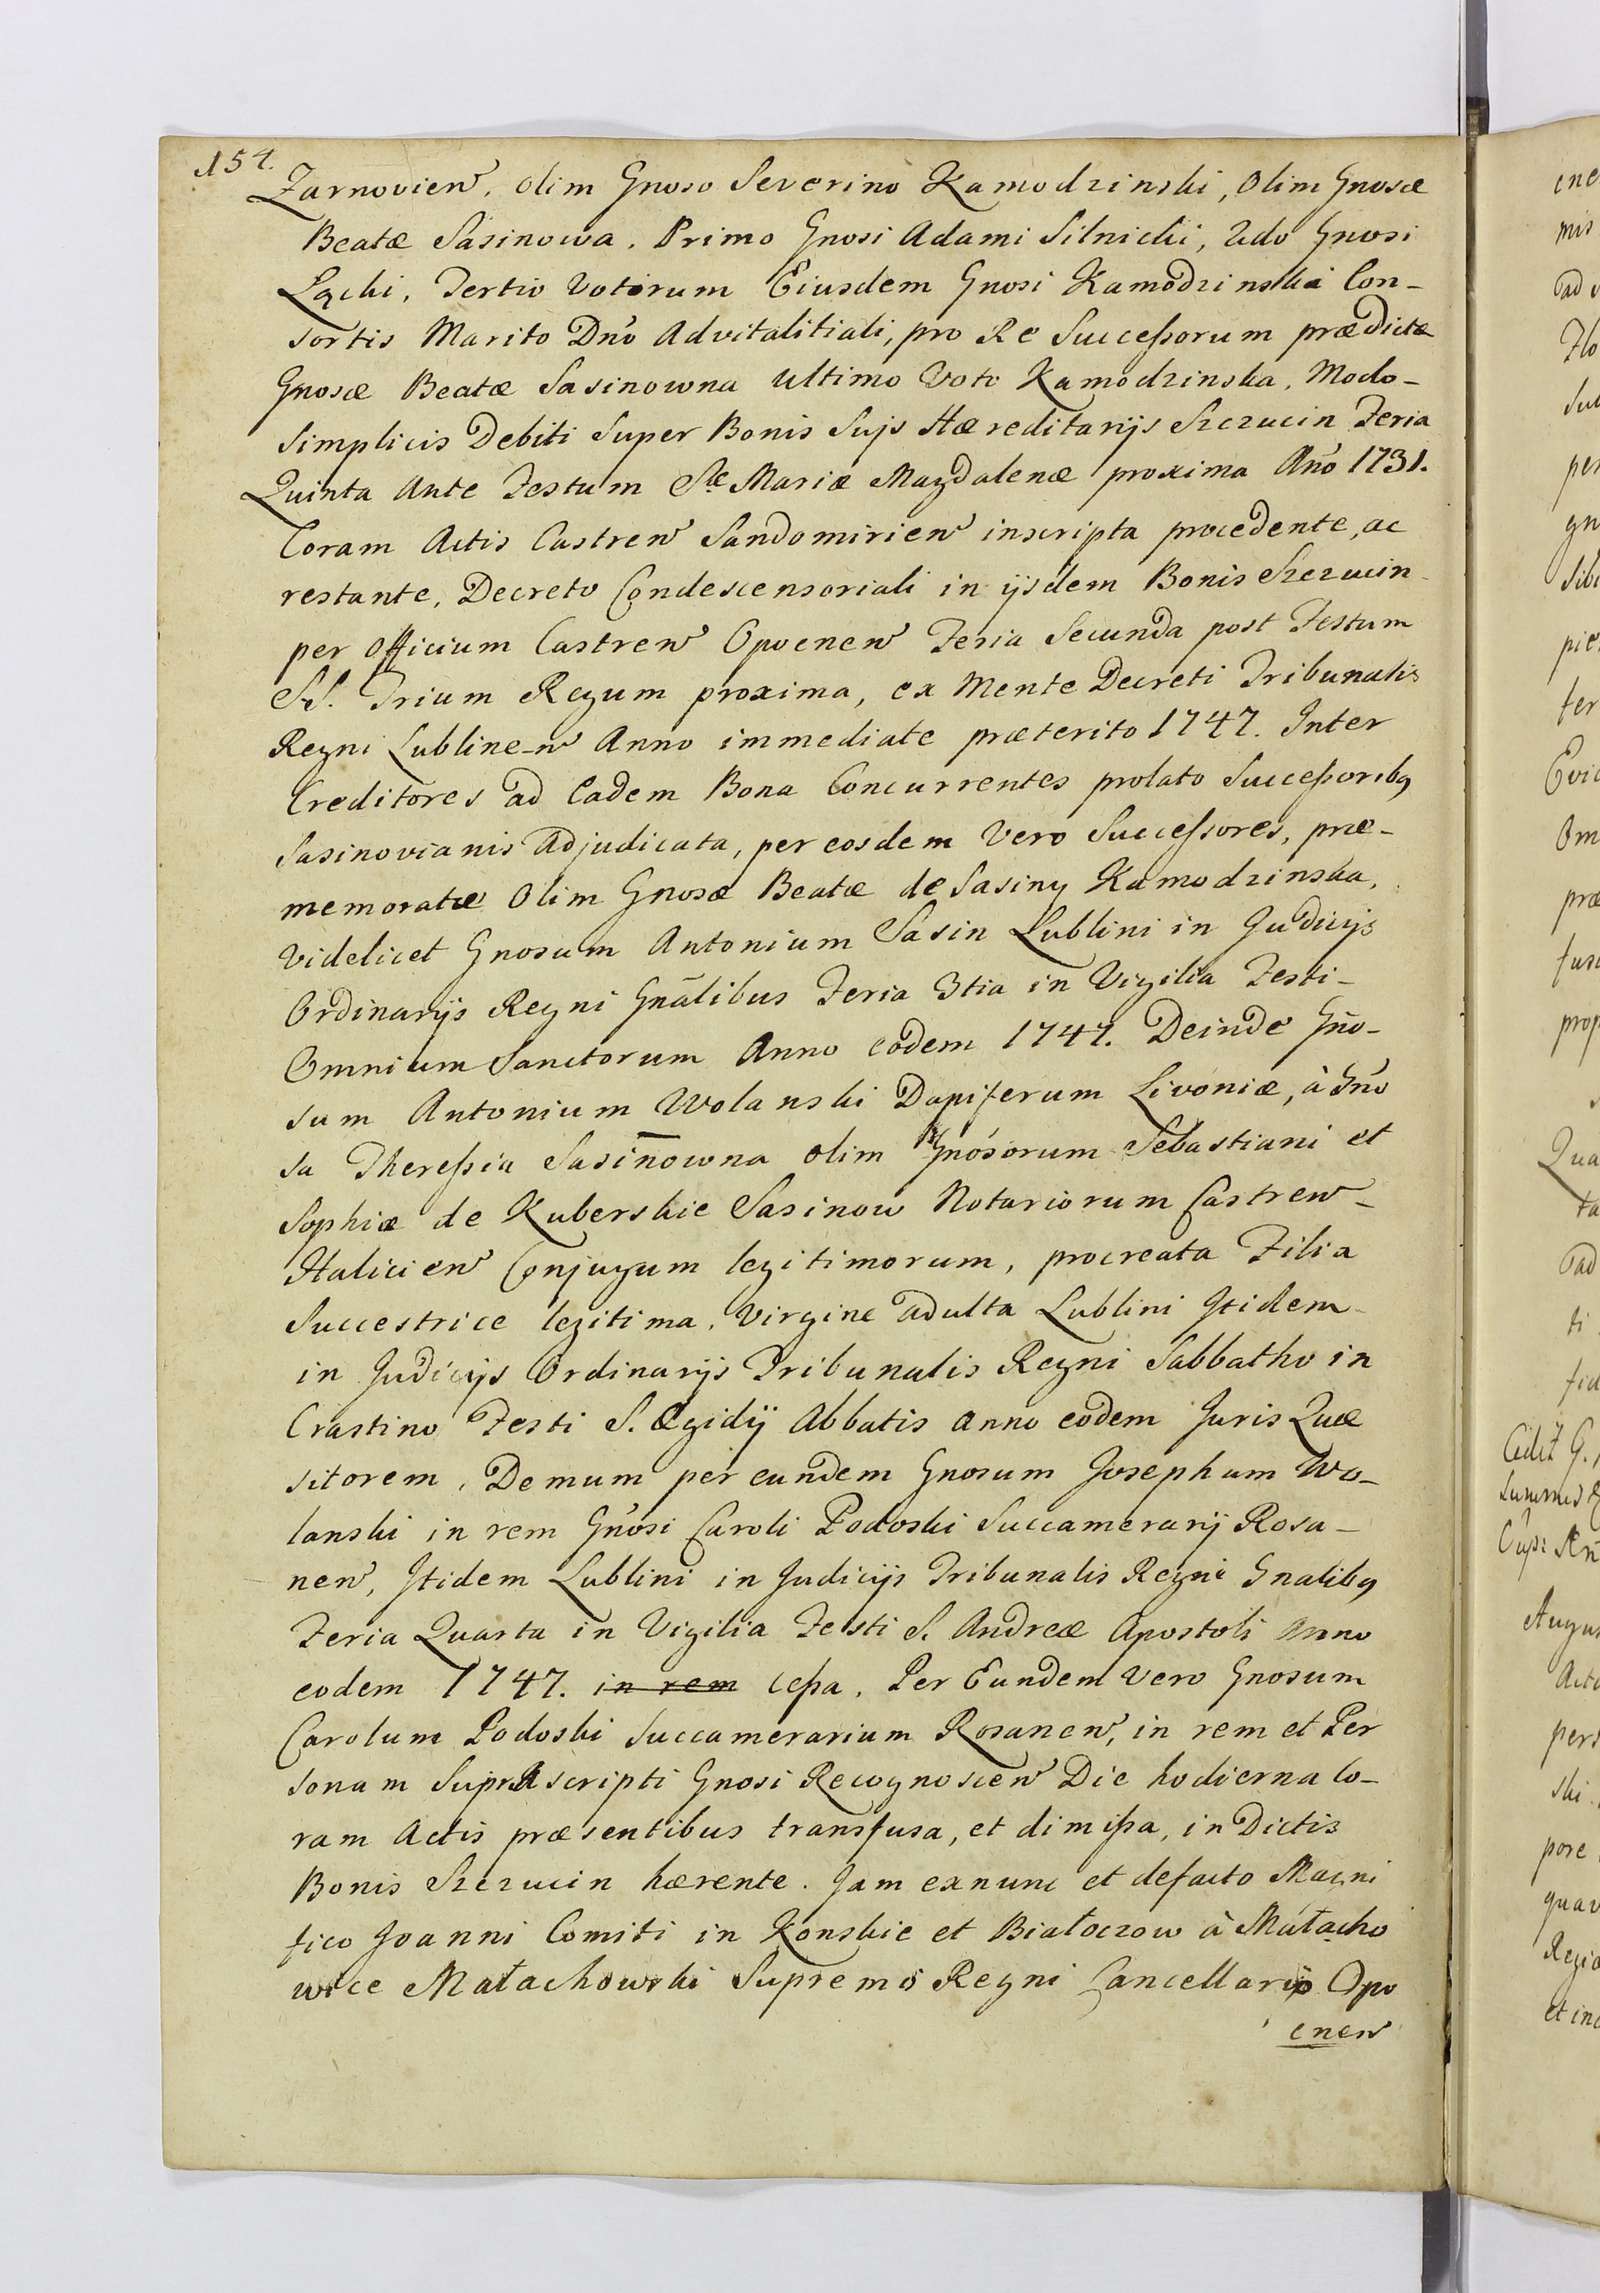 154.
Zarnovien, Olim Gnoso Severino Kamodzinski, Olim Gnosæ
Beatæ Sasinowa. Primo Gnosi Adami Silnicki, 2do Gnosi
Lącki, Tertio Votorum Eiusdem Gnosi Kamodzinski Con-
sortis Marito Dnō Advitalitiali, pro Re Successorum prædictæ
Gnosæ Beatæ Sasinowna ultimo Voto Kamodzinska, Modo-
Simplicis Debiti Super Bonis Suijs Hæreditarijs Szczucin Feria
Quinta Ante Festum Stæ Mariæ Magdalenæ proxima Añō 1731.
Coram Actis Castren Sandomirien inscripta procedente, ac
restante, Decreto Condescensoriali in ijsdem Bonis Szczucin
per Officium Castren Opocnen Feria Secunda post Festum
SS. Trium Regum proxima, ex Mente Decreti Tribunalis
Regni Lubline-n Anno immediate præterito 1747. Inter
Creditores ad Eadem Bona Concurrentes prolato Successoribq
Sasinovianis Adjudicata, per eosdem Vero Successores, præ-
memoratæ Olim Gnosæ Beatæ de Sasiny Kamodzinska,
Videlicet Gnosum Antonium Sasin Lublini in Judicijs
Ordinarijs Regni Gnãlibus Feria 3tia in Vigilia Festi-
Omnium Sanctorum Anno eodem 1747. Deinde Gño-
sum Antonium Wolanski Dapiferum Livoniæ, à Gño
sa Theressia Sasinowna olim Gnosorum Sebastiani et
Sophiæ de Kuberskie Sasinow Notariorum Castren-
Halicien Conjugum legitimorum, procreata Filia
Succestrice legitima, Virgine adulta Lublini Itidem
in Judicijs Ordinarijs Tribunalis Regni Sabbatho in
Crastino Festi S. Ægidij Abbatis anno eodem Juris Quæ
sitorem, Demum per eundem Gnosum Josephum Wo-
lanski in rem Gnosi Caroli Podoski Succamerarij Rosa-
nen, Itidem Lublini in Judicijs Tribunalis Regni Gnalibq
Feria Quarta in Vigilia Festi S. Andreæ Apostoli Anno
eodem 1747. in rem cessa, Per Eundem Vero Gnosum
Carolum Podoski Succamerarium Rosanen, in rem et Per
sonam Suprascripti Gnosi Recognoscen Die hodierna Co-
ram Actis præsentibus transfusa, et dimissa, in Dictis
Bonis Szczucin hærente. Jam exnunc et defacto Magni
fico Joanni Comiti in Konskie et Białoczow à Małacho
wice Małachowski Supremo Regni Cancellario Opo
cnen